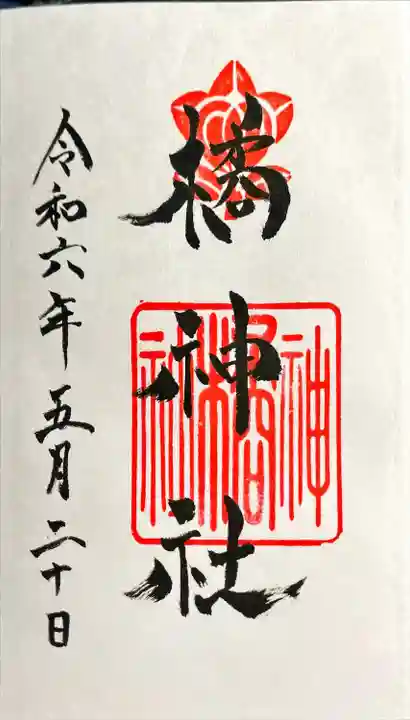 橘神社
令和六年五月二十日